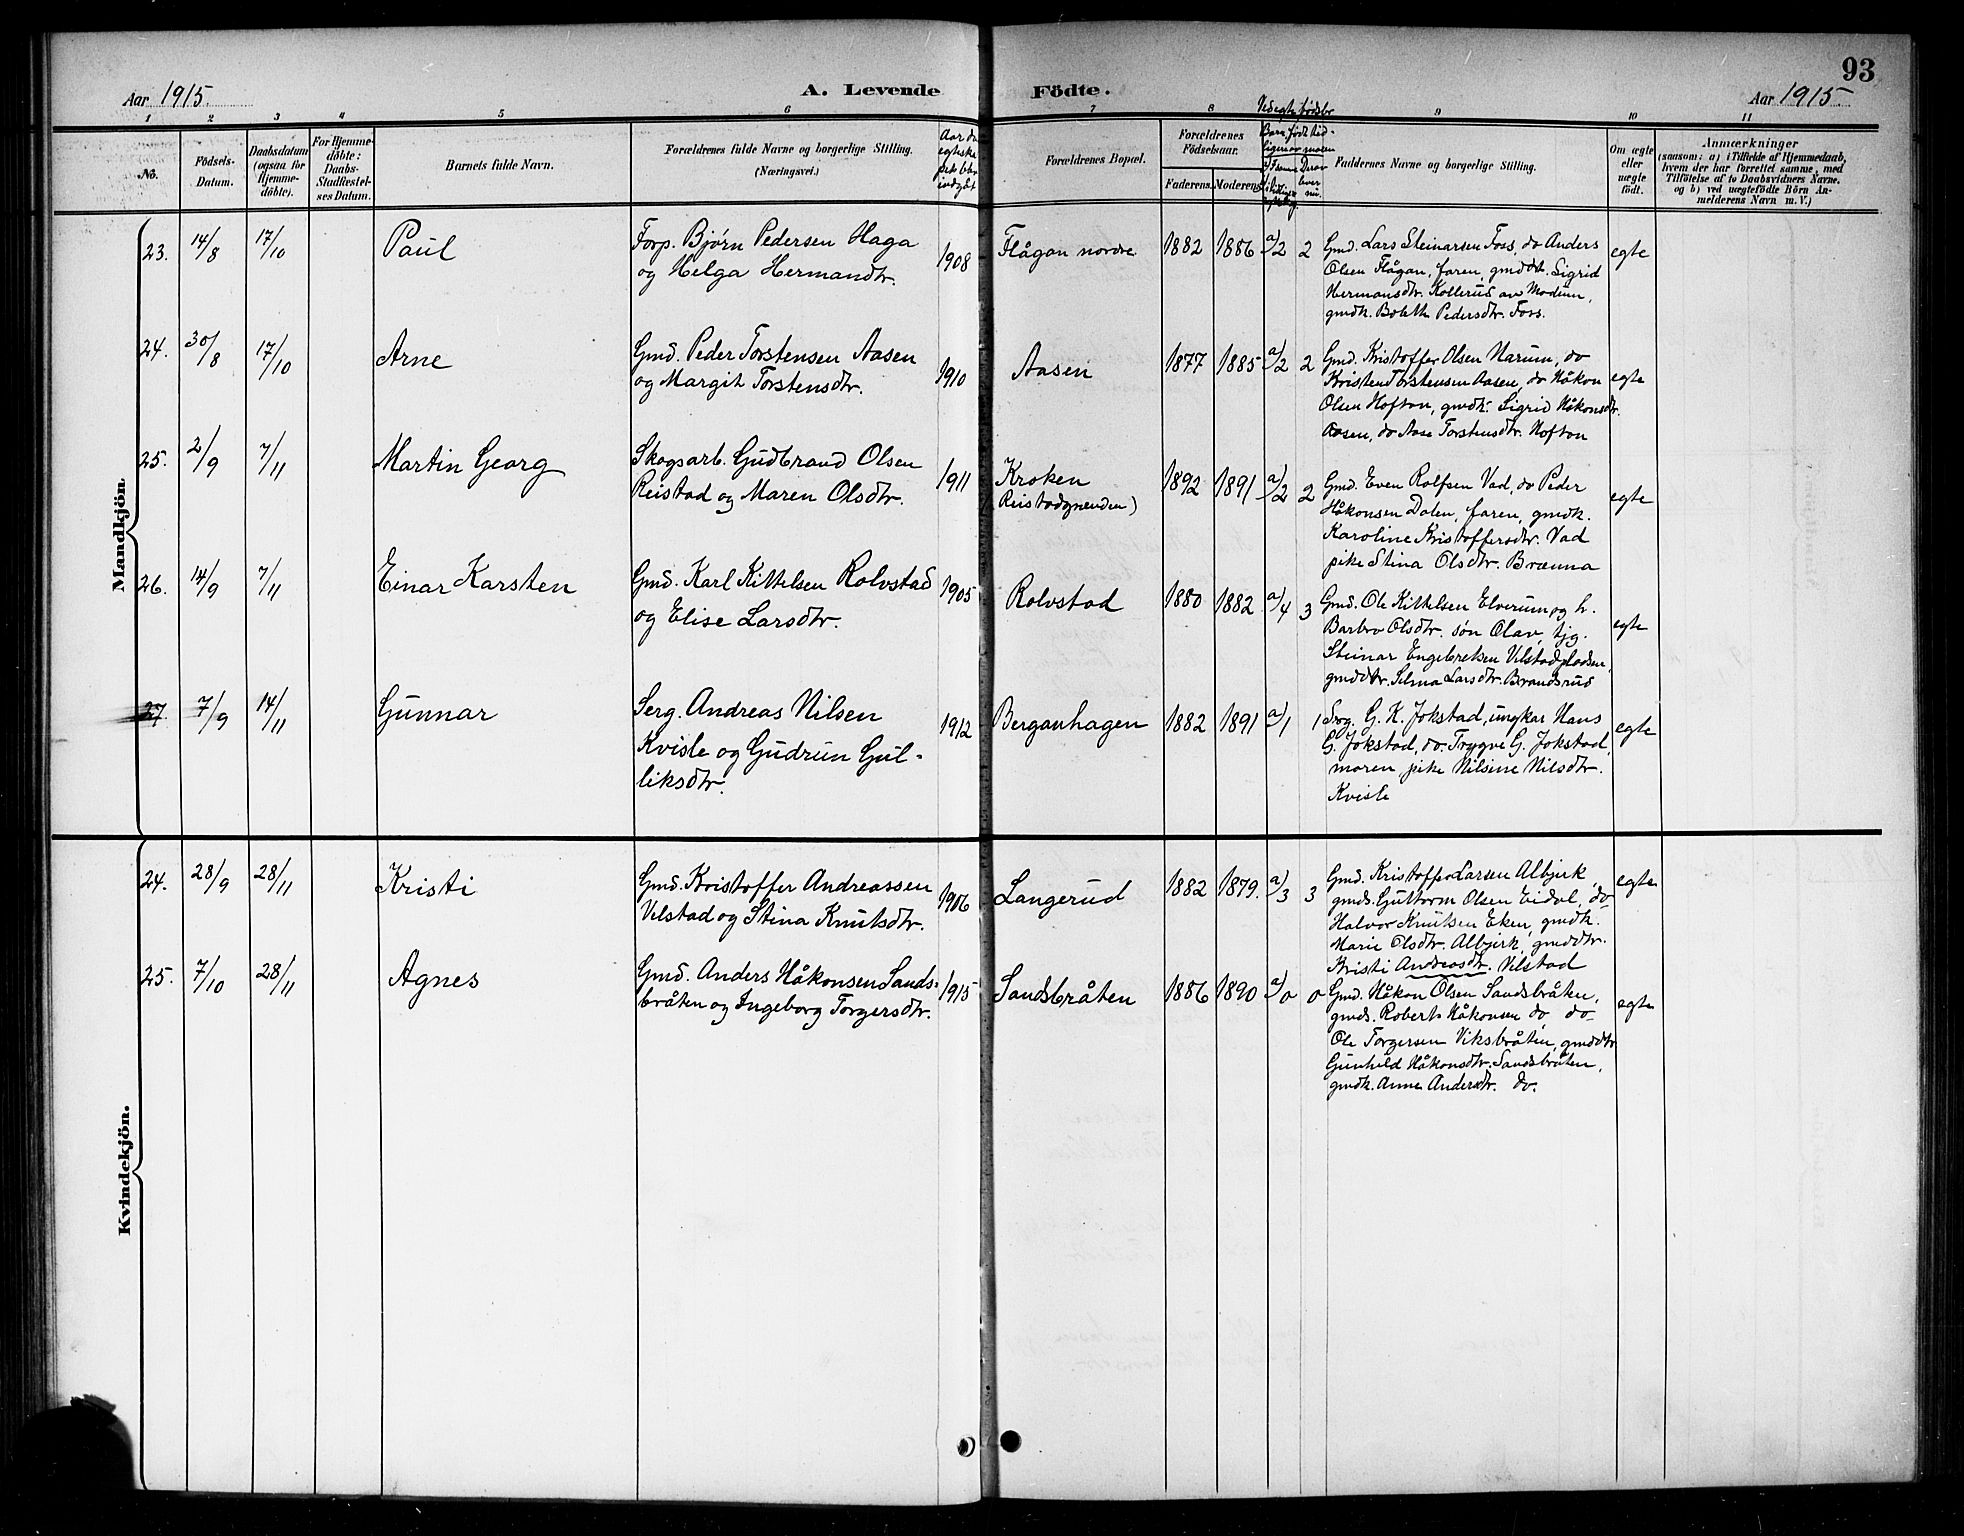 93
Aar 1915.
A. Levende
Födte.
Aar 1915.
1 2 3 4 5 6 7 8 9 10 11
No.
Födsels-
Datum.
Daabsdatum
(ogsaa for
Hjemme-
döbte).
For Hjemme-
döbte:
Daabs-
Stadfæstel-
ses Datum.
Barnets fulde Navn.
Forældrenes fulde Navne og borgerlige Stilling.
(Næringsvei.)
Aar da
egteska-
pet blev
indgåt
Forældrenes Bopæl.
Forældrenes
Födselsaar.
Faderens.
Moderens.
Ved egte fødsler
Barn født tid-
ligere av moren
Derav
lever
nu.
Faddernes Navne og borgerlige Stilling.
Om ægte
eller
uægte
födt.
Anmærkninger
(saasom: a) i Tilfælde af Hjemmedaab,
hvem der har forrettet samme, med
Tilföielse af to Daabsvidners Navne.
og b) ved uægtefödte Börn An-
melderens Navn m. V.)
Mandkjön.
23. 14/8 17/10 Paul
Forp. Bjørn Pedersen Haga
og Helga Hermandtr.
1908
Flågan nordre
1882 1886 a/2 2
Gmd. Lars Steinarsen Foss, do Anders
Olsen Flågan, faren, gmddt. Sigrid
Hermansdtr. Kollerud av Modum,
gmdk. Boleth Pedersdtr. Foss.
egte
24. 30/8 17/10 Arne
Gmd. Peder Torstensen Aasen
og Margit Torstensdtr.
1910
Aasen
1877 1885 a/2 2
Gmd. Kristoffer Olsen Narum, do
Kristen Torstensen Aasen, do Håkon
Olsen Hofton, gmdk. Sigrid Håkonsdtr.
Aasen, do Aase Torstensdtr. Hofton
egte
25. 2/9 7/11 Martin Georg
Skogsarb. Gudbrand Olsen
Reistad og Maren Olsdtr.
1911
Kroken
(Reistadgrenden)
1892 1891 a/2 2
Gmd. Even Rolfsen Vad, do Peder
Håkonsen Dalen, faren, gmdk.
Karoline Kristoffersdtr. Vad
pike Stina Olsdtr. Brænna
egte
26. 14/9 7/11 Einar Karsten
Gmd. Karl Kittelsen Rolvstad
og Elise Larsdtr.
1905
Rolvstad
1880 1882 a/4 3
Gmd. Ole Kittelsen Elverum og h.
Barbro Olsdtr. søn Olav, tjg.
Steinar Engebretsen Velstadpladsen,
gmddtr. Selma Larsdtr. Brandsrud
egte
27. 7/9 14/11 Gunnar
Serg. Andreas Nilsen
Kvisle og Gudrun Gul-
liksdtr.
1912
Berganhagen
1882 1891 a/1 1
G. K. Jokstad, ungkar Hans
G. Jokstad, do. Trygve G. Jokstad,
moren, pike Nilsine Nilsdtr.
Kvisle
egte
Kvindekjön.
24. 28/9 28/11 Kristi
Gmd. Kristoffer Andreassen
Velstad og Stina Knutsdtr.
1906
Langerud
1882 1879. a/3 3
Gmd. Kristoffer Larsen Albjerk,
gmds. Guttorm Olsen Eidal, do
Halvor Knutsen Eken, gmdk.
Marie Olsdtr. Albjerk, gmddtr.
Kristi Andreasdtr. Velstad
egte
25. 7/10 28/11 Agnes
Gmd. Anders Håkonsen Sands-
bråten og Ingeborg Torgersdtr.
1915
Sandsbråten
1886 1890 a/0 0
Gmd. Håkon Olsen Sandsbråten,
gmds. Robert Håkonsen do, do
Ole Torgersen Viksbråten, gmddtr
Gunhild Håkonsdtr. Sandsbråten,
gmdk. Anne Andersdtr. do.
egte